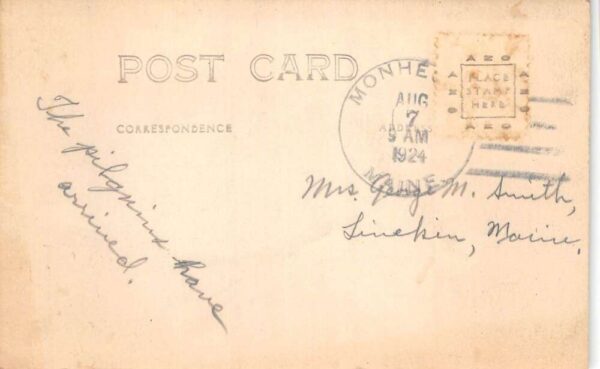 POST CARD
MONHE
AUG
7
9 AM
1924
MAINE
ANO
ANO
PLACE
STAMP
HERE
ANO
ANO
CORRESPONDENCE
ADDRESS
The pilgrims have
arrived.
Mrs. George M. Smith,
Linekin, Maine.